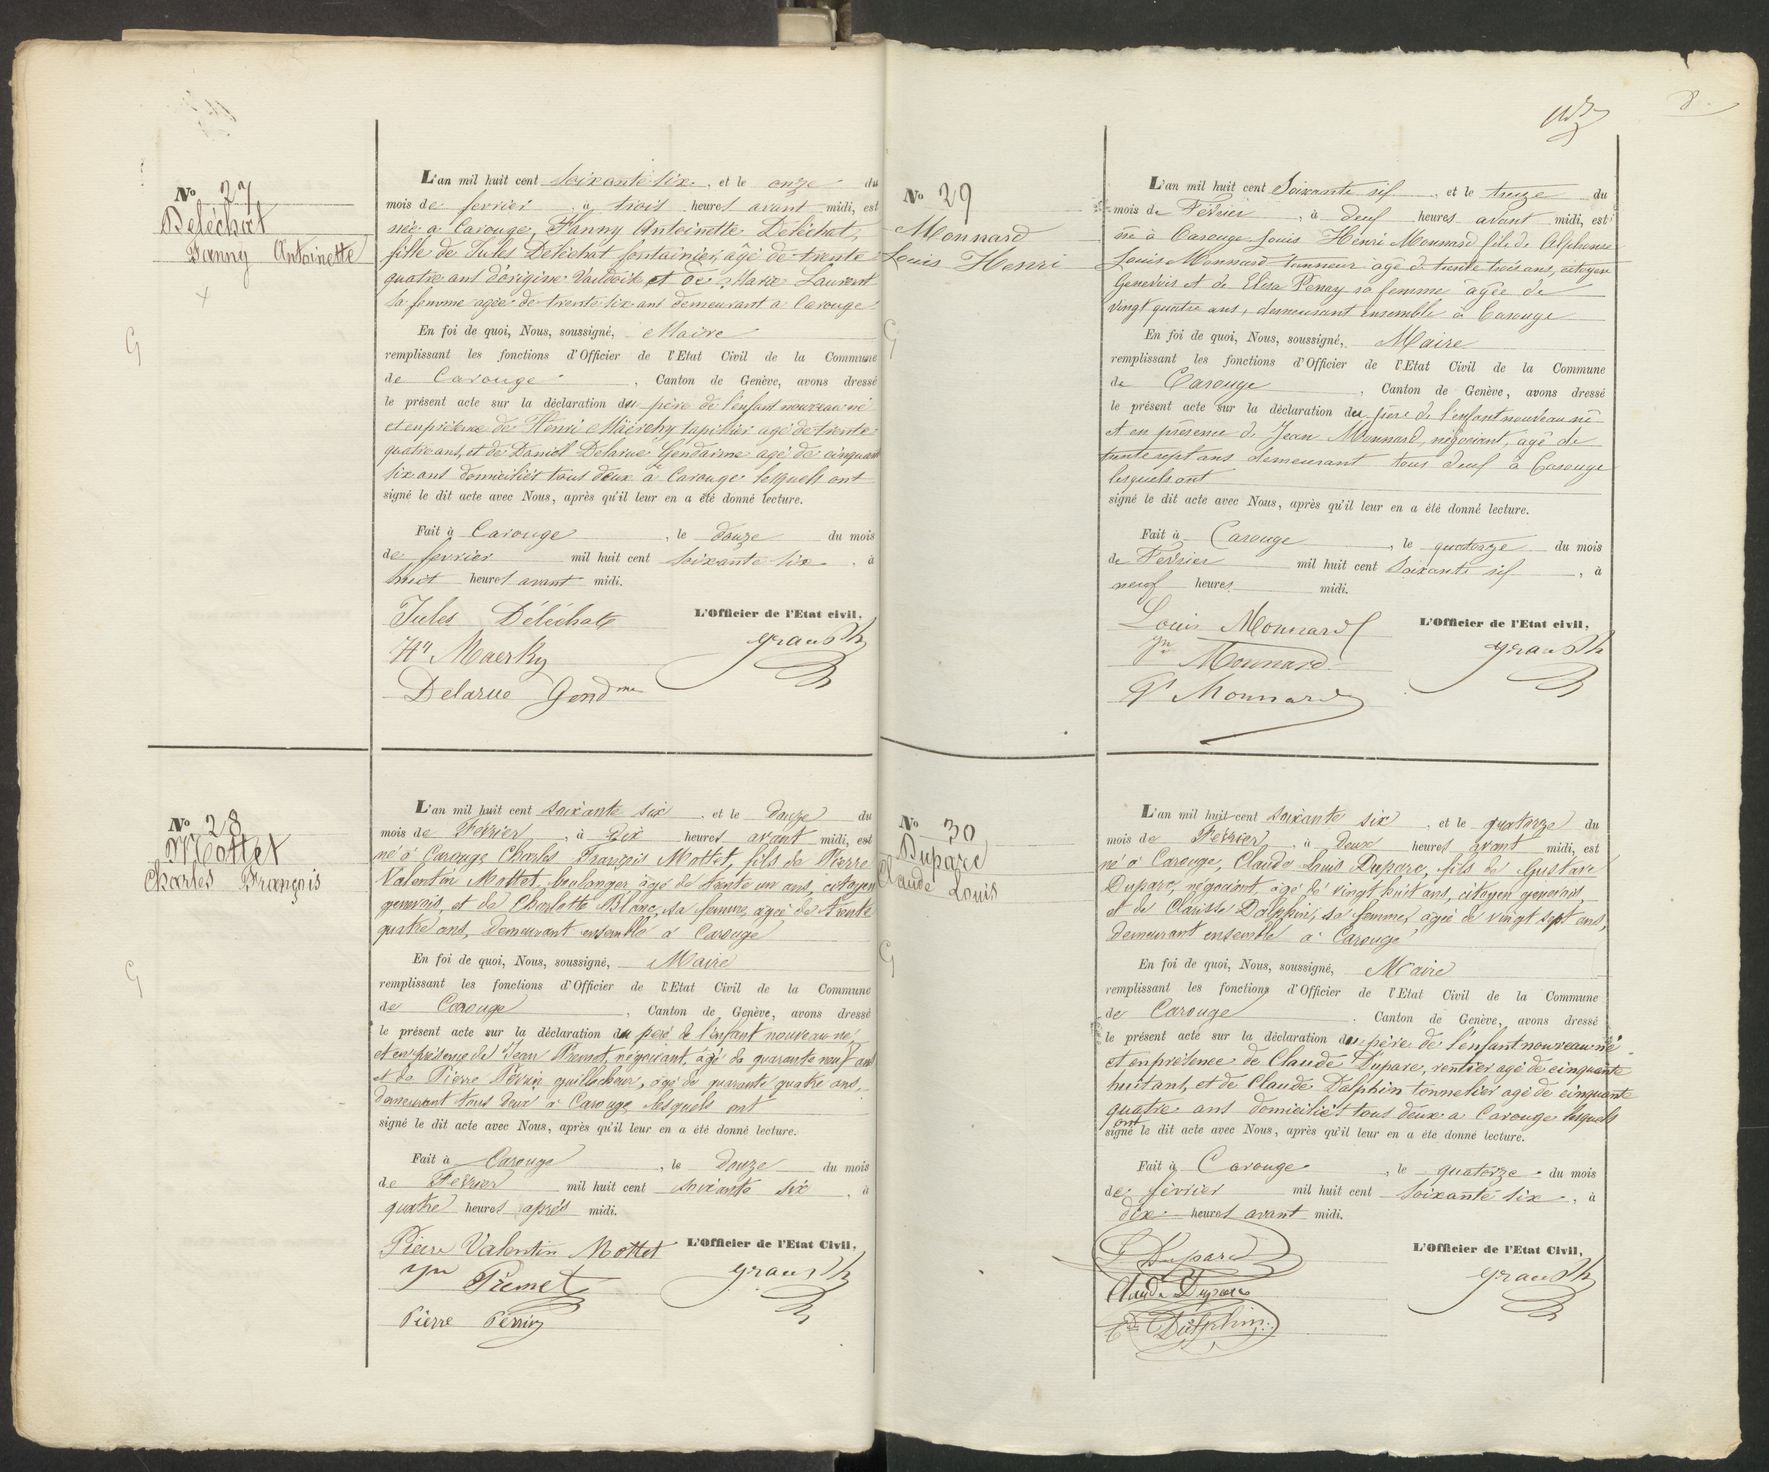 8.
No 27
Deléchat
Fanny Antoinette
L'an mil huit cent soixante six, et le onze du
mois de fevrier, à trois heures avant midi, est
née a Carouge, Fanny Antoinette Deléchat,
fille de Jules Deléchat fontainier, âgé de trente
quatre ans d'origine Vaudoise et de Marie Laurent
sa femme agée de trente six ans demeurant a Carouge
En foi de quoi, Nous, soussigné, Maire
remplissant les fonctions d'Officier de l'Etat Civil de la Commune
de Carouge, Canton de Genève, avons dressé
le présent acte sur la déclaration du père de l'enfant nouveau né
et en présence de Henri Maerky tapissier agé de trente
quatre ans, et de Daniel Delarue Gendarme agé de cinquante
six ans domiciliés tous deux à Carouge lesquels ont
signé le dit acte avec Nous, après qu'il leur en a été donné lecture.
Fait à Carouge, le douze du mois
de fevrier mil huit cent soixante six, à
huit heures avant midi.
L'Officier de l'Etat civil,
Jules Déléchat
Hri Maerky
Delarue Gendme
No 28
Mottet
Charles François
L'an mil huit cent soixante six, et le douze du
mois de Février, à dix heures avant midi, est
né à Carouge Charles François Mottet, fils de Pierre
Valentin Mottet, boulanger, âgé de trente un ans, citoyen
genevois, et de Charlotte Blanc, sa femme, agée de trente
quatre ans, demeurant ensemble à Carouge
En foi de quoi, Nous, soussigné, Maire
remplissant les fonctions d'Officier de l'Etat Civil de la Commune
de Carouge, Canton de Genève, avons dressé
le présent acte sur la déclaration du père de l'enfant nouveau né,
et en présence de Jean négociant, âgé de quarante neuf ans
et de Pierre Perrin guillocheur, âgé de quarante quatre ans,
demeurant tous deux à Carouge lesquels ont
signé le dit acte avec Nous, après qu'il leur en a été donné lecture.
Fait à Carouge, le douze du mois
de Février mil huit cent soixante six, à
quatre heures après midi.
L'Officier de l'Etat Civil,
Pierre Valentin Mottet
Pierre Perrin
No 29
Monnard
Louis Henri
L'an mil huit cent Soixante six et le treize du
mois de Février, à deux heures avant midi, est
né à Carouge Louis Henri Monnard fils de Alphonse
Louis Monnard tanneur agé de trente trois ans, citoyen
Genevois et de Elisa Perray sa femme agée de
vingt quatre ans, demeurant ensemble à Carouge
En foi de quoi, Nous, soussigné, Maire
remplissant les fonctions d'Officier de l'Etat Civil de la Commune
de Carouge, Canton de Genève, avons dressé
le présent acte sur la déclaration du père de l'enfant nouveau né
et en présence de Jean Monnard, négociant, agé de
trente sept ans demeurant tous deux à Carouge
lesquels ont
signé le dit acte avec Nous, après qu'il leur en a été donné lecture.
Fait à Carouge, le quatorze du mois
de Février mil huit cent Soixante six, à
neuf heures midi.
L'Officier de l'Etat civil,
Louis Monnard
Jn Monnard
Monnard
No 30
Duparc
Claude Louis
L'an mil huit cent soixante six, et le quatorze du
mois de Février, à deux heures avant midi, est
né à Carouge, Claude Louis Duparc, fils de Gustave
Duparc, négociant, âgé de vingt huit ans, citoyen genevois,
et de Clarisse Dalphin, sa femme, agée de vingt sept ans,
demeurant ensemble à Carouge
En foi de quoi, Nous, soussigné, Maire
remplissant les fonctions d'Officier de l'Etat Civil de la Commune
de Carouge. Canton de Genève, avons dressé
le présent acte sur la déclaration du père de l'enfant nouveau né
et en présence de Claude Duparc, rentier agé de cinquante
huit ant, et de Claude Dalphin tonnelier agé de cinquante
quatre ans domiciliés tous deux a Carouge lesquels
ont
signé le dit acte avec Nous, après qu'il leur en a été donné lecture.
Fait à Carouge, le quatorze du mois
de février mil huit cent soixante six, à
dix heures avant midi.
L'Officier de l'Etat Civil,
G Duparc
Claude Duparc
Dalphin